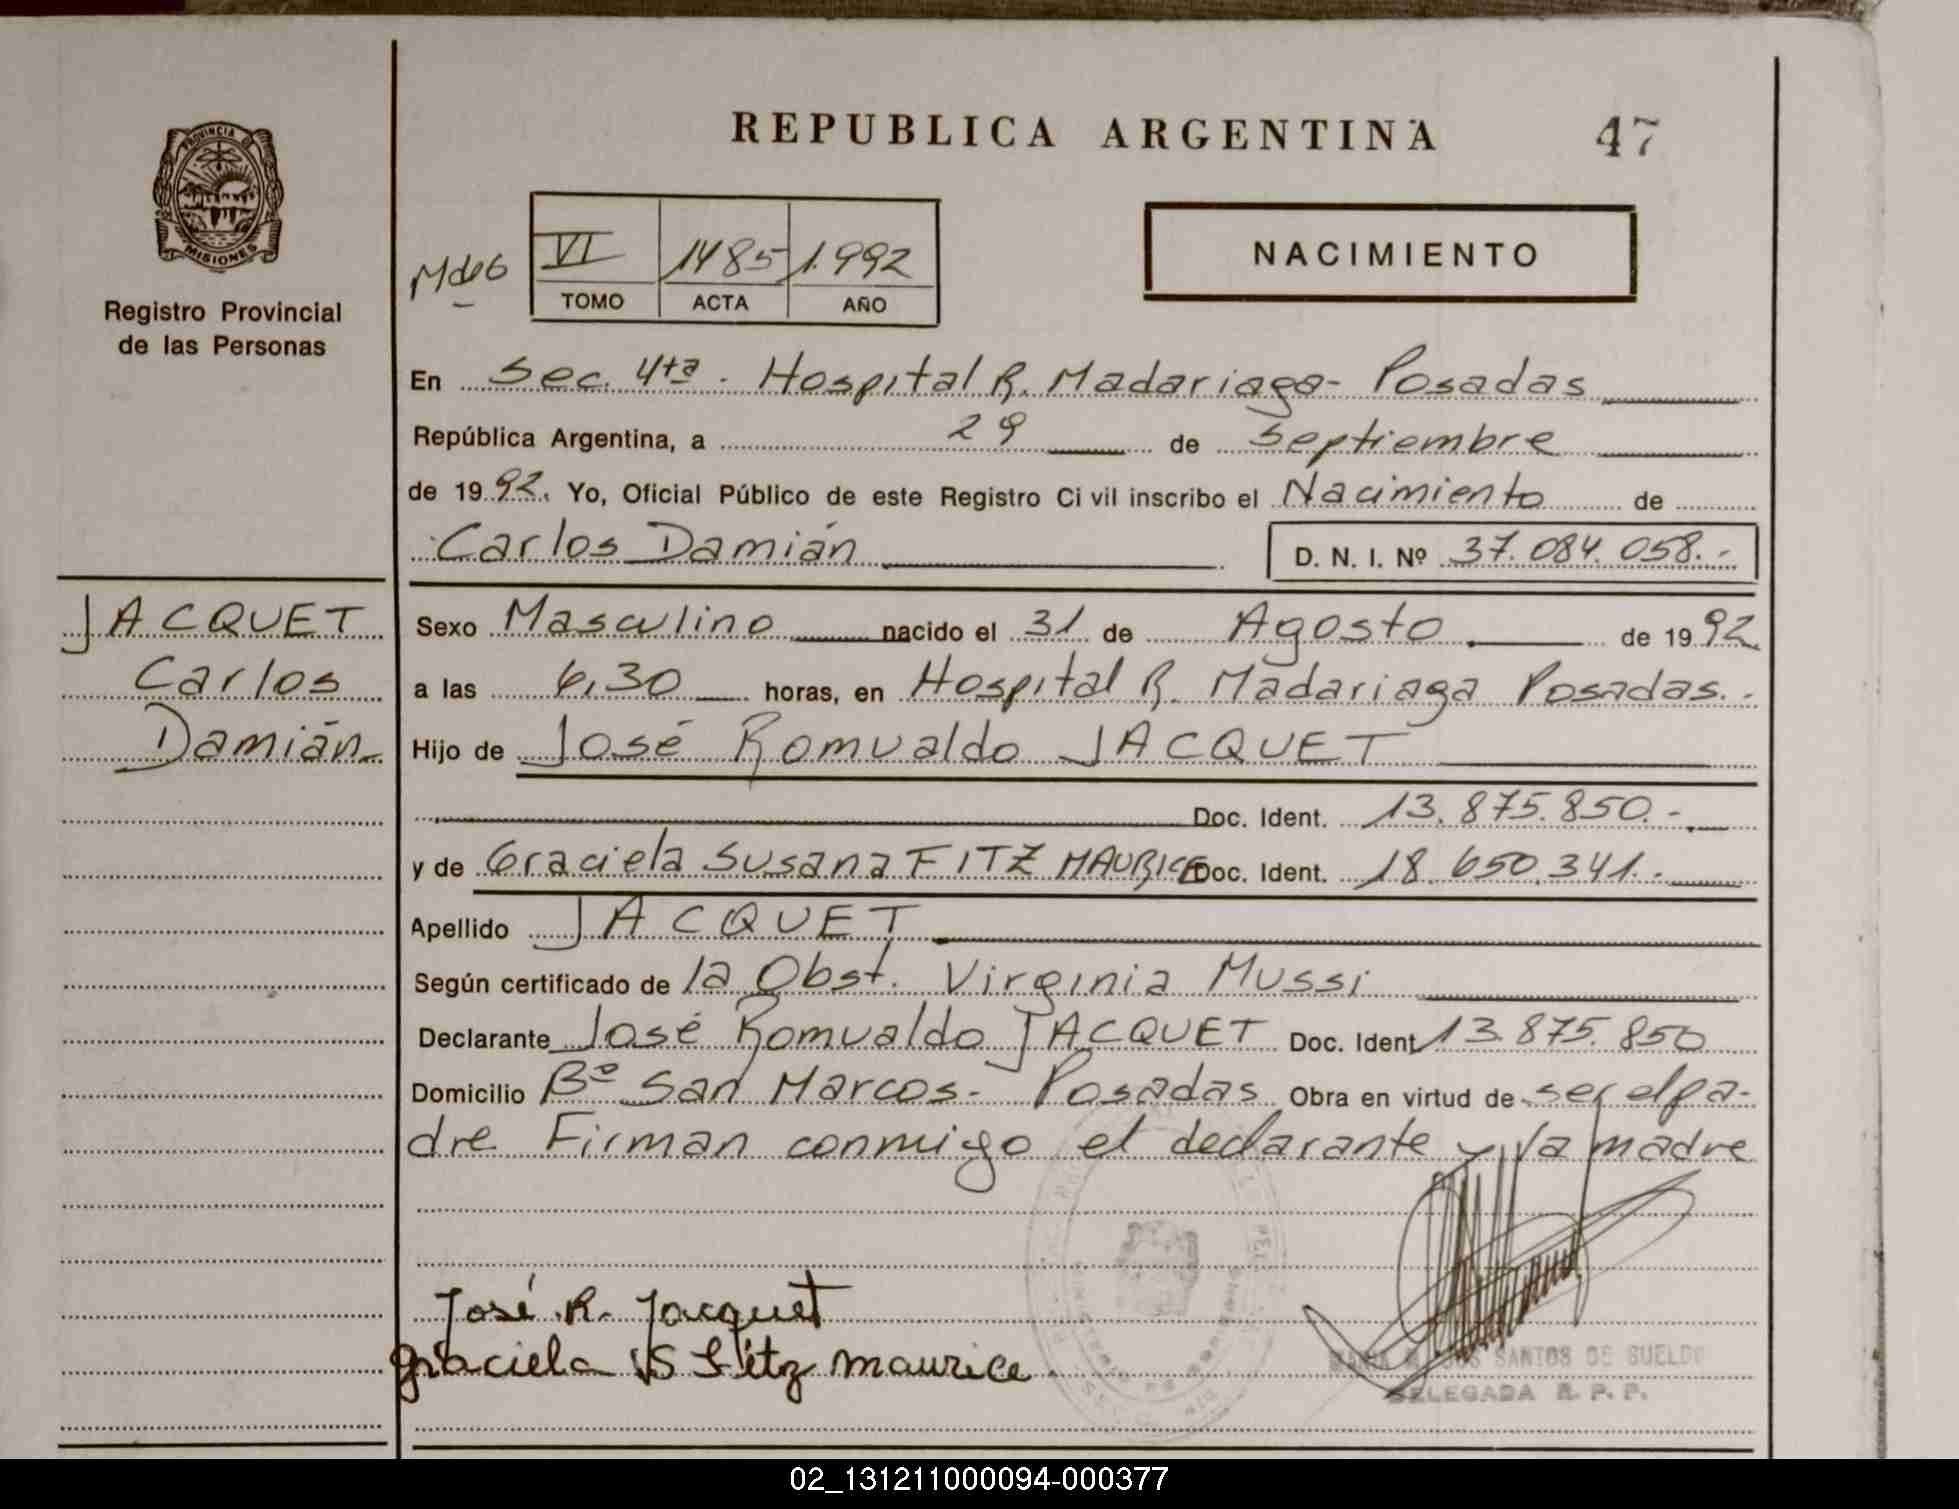 REPUBLICA ARGENTINA 47
PROVINCIA D
MISIONES
Registro Provincial
de las Personas
VI 1485 1.992
TOMO ACTA AÑO
NACIMIENTO
En Sec. 4ta. Hospital R. Madariaga - Posadas
República Argentina, a 29 de Septiembre
de 1992. Yo, Oficial Público de este Registro Ci vil inscribo el Nacimiento de
Carlos Damián D. N. I. Nº 37.084.058.-
JACQUET
Carlos
Damián
Sexo Masculino nacido el 31 de Agosto de 1992
a las 6,30 horas, en Hospital R. Madariaga Posadas.-
Hijo de José Romualdo JACQUET
Doc. Ident. 13.875.850.-
y de Graciela Susana FITZ MAURICE Doc. Ident. 18.650.341.-
Apellido JACQUET
Según certificado de la Obst. Virginia Mussi
Declarante José Romualdo JACQUET Doc. Ident 13.875.850
Domicilio Bº San Marcos - Posadas Obra en virtud de ser el pa-
dre Firman conmigo el declarante y la madre
José R. Jacquet
Graciela S Fitz maurice
SANTOS DE SUELDO
DELEGADA R. P. P.
02_131211000094-000377